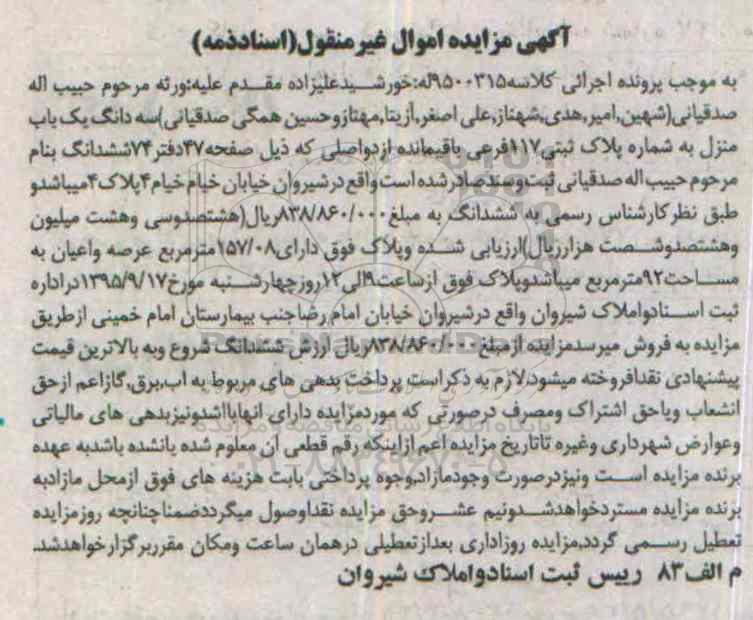 آگهی مزایده اموال غیرمنقول(اسنادذمه)
به موجب پرونده اجرائی کلاسه۹۵۰۰۳۱۵له:خورشیدعلیزاده مقدم علیه:ورثه مرحوم حبیب اله
صدقیانی(شهین,امیر,هدی,شهناز,علی اصغر,آزیتا,مهتازوحسین همگی صدقیانی)سه دانگ یک باب
منزل به شماره پلاک ثبتی۱۱۷فرعی باقیمانده ازدواصلی که ذیل صفحه۴۷دفتر۷۴ششدانگ بنام
مرحوم حبیب اله صدقیانی ثبت وسندصادرشده است واقع درشیروان خیابان خیام خیام۴پلاک۴میباشدو
طبق نظرکارشناس رسمی به ششدانگ به مبلغ۸۳۸/۸۶۰/۰۰۰ریال(هشتصدوسی وهشت میلیون
وهشتصدوشصت هزارریال)ارزیابی شده وپلاک فوق دارای۱۵۷/۰۸مترمربع عرصه واعیان به
مساحت۹۲مترمربع میباشدوپلاک فوق ازساعت۹الی۱۲روزچهارشنبه مورخ۱۳۹۵/۹/۱۷دراداره
ثبت اسنادواملاک شیروان واقع درشیروان خیابان امام رضاجنب بیمارستان امام خمینی ازطریق
مزایده به فروش میرسدمزایده ازمبلغ۸۳۸/۸۶۰/۰۰۰ریال ارزش ششدانگ شروع وبه بالاترین قیمت
پیشنهادی نقدافروخته میشود,لازم به ذکراست پرداخت بدهی های مربوط به اب,برق,گازاعم ازحق
انشعاب ویاحق اشتراک ومصرف درصورتی که موردمزایده دارای انهاباشدونیزبدهی های مالیاتی
وعوارض شهرداری وغیره تاتاریخ مزایده اعم ازاینکه رقم قطعی ان معلوم شده یانشده باشدبه عهده
برنده مزایده است ونیزدرصورت وجودمازاد,وجوه پرداختی بابت هزینه های فوق ازمحل مازادبه
برنده مزایده مستردخواهدشدونیم عشروحق مزایده نقداوصول میگرددضمناچنانچه روزمزایده
تعطیل رسمی گردد,مزایده روزاداری بعدازتعطیلی درهمان ساعت ومکان مقرربرگزارخواهدشد.
م الف۸۳ رییس ثبت اسنادواملاک شیروان
ParsNamadData
پایگاه اطلاع رسانی مناقصه و مزایده
۰۲۱-۸۸۳۴۹۶۷۰-۵